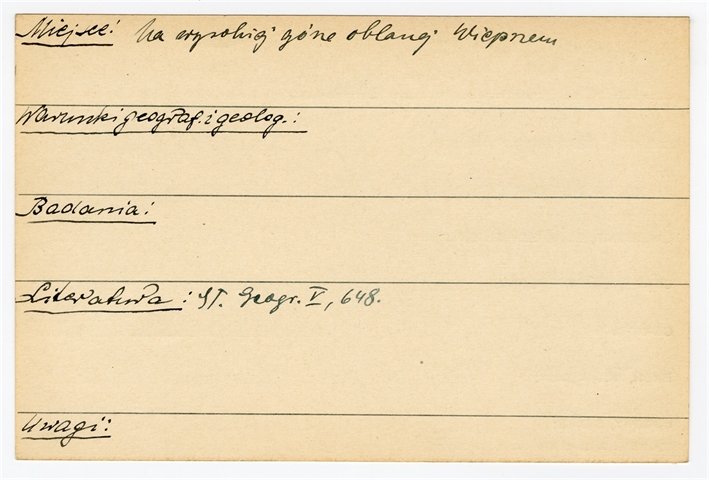 Miejsce: Na wysokiej górze oblanej Wieprzem
Warunki geograf. i geolog.:
Badania:
Literatura: Sł. Geogr. V, 648.
Uwagi: